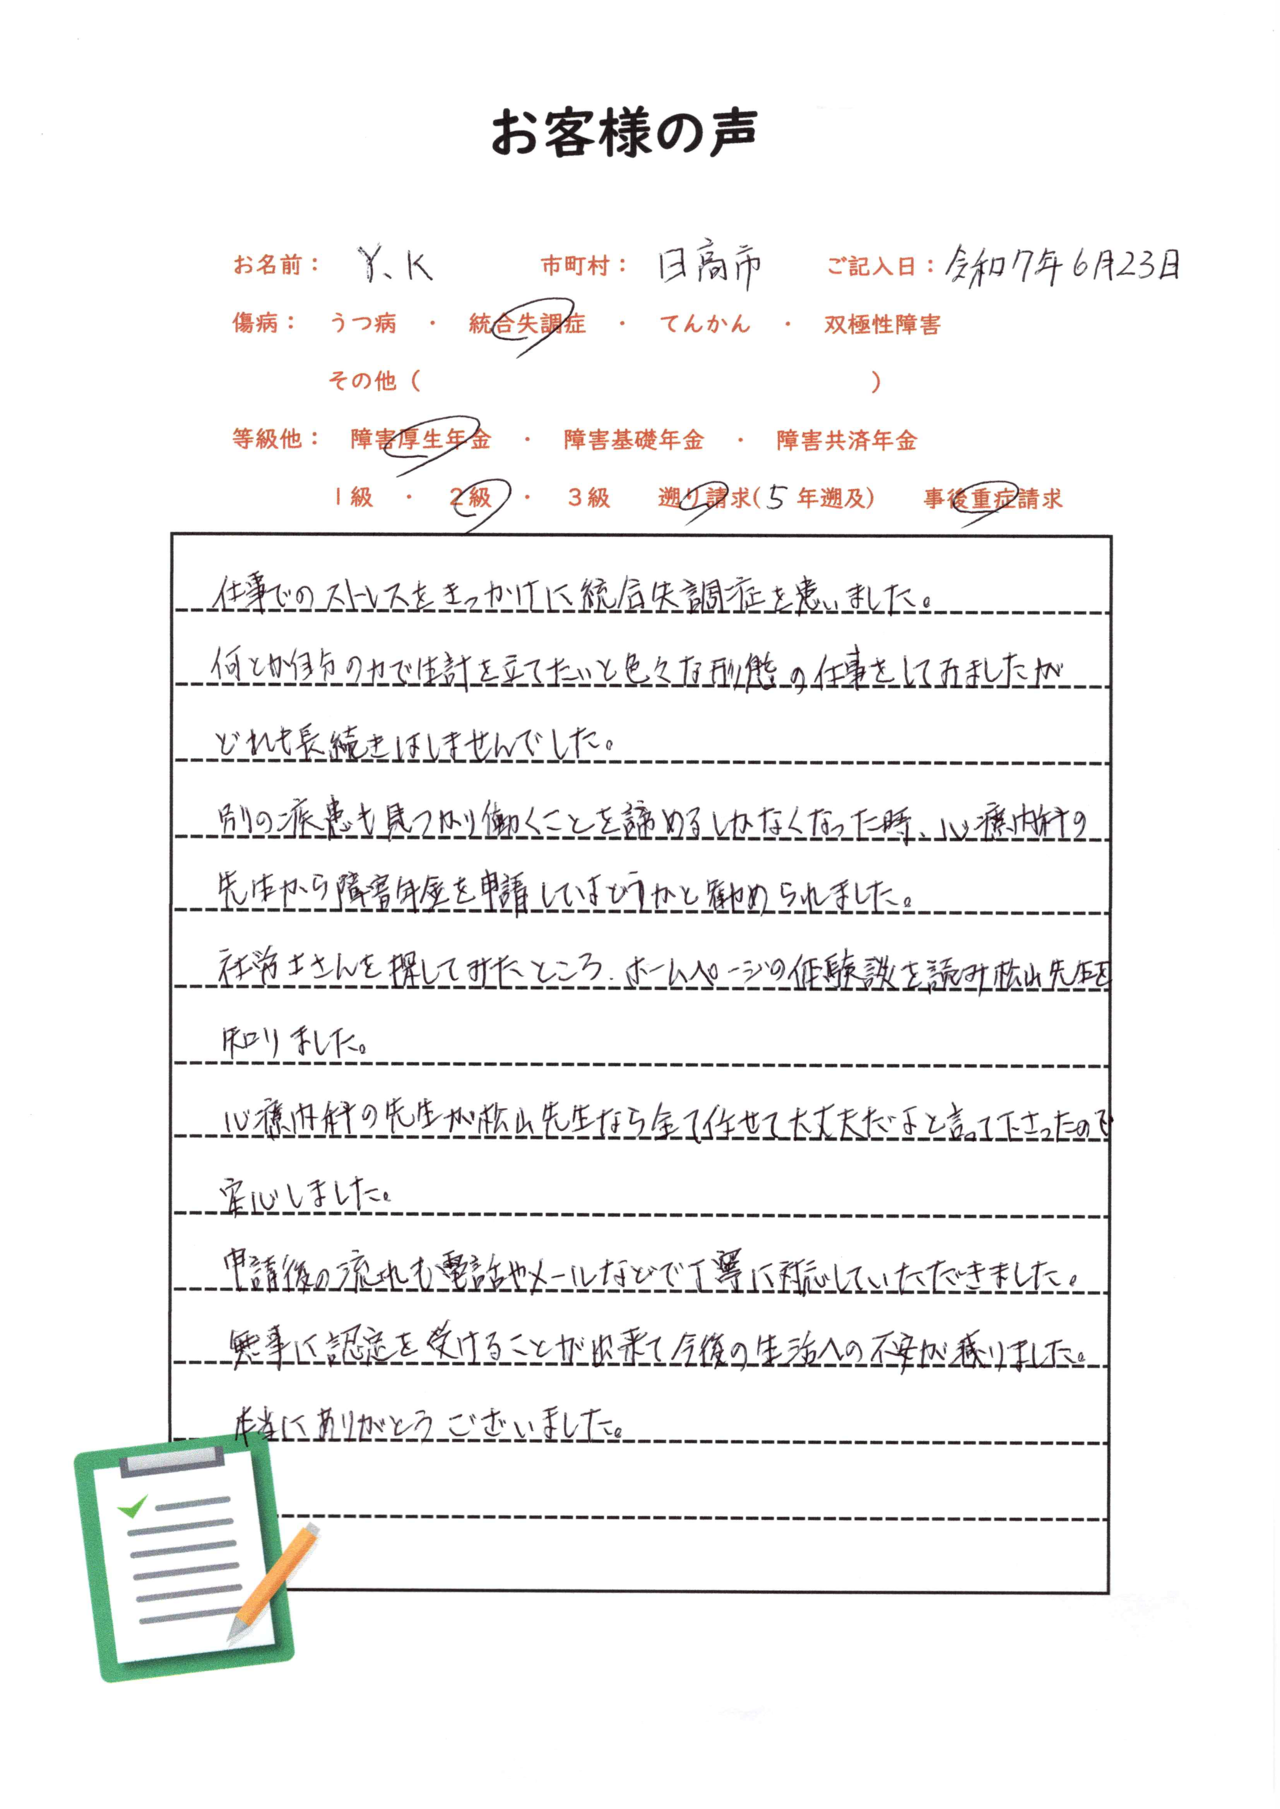 お客様の声
お名前： Y、K 市町村： 日高市 ご記入日： 令和7年6月23日
傷病： うつ病 ・ 統合失調症 ・ てんかん ・ 双極性障害
その他（ ）
等級他： 障害厚生年金 ・ 障害基礎年金 ・ 障害共済年金
1級 ・ 2級 ・ 3級 遡り請求(5年遡及) 事後重症請求
仕事でのストレスをきっかけに統合失調症を患いました。
何とか自分の力で生計を立てたいと色々な形態の仕事をしてみましたが
どれも長続きはしませんでした。
別の疾患も見つかり働くことを諦めるしかなくなった時、心療内科の
先生から障害年金を申請してはどうかと勧められました。
社労士さんを探してみたところ、ホームページの体験談を読み松山先生を
知りました。
心療内科の先生が松山先生なら全て任せて大丈夫だよと言って下さったので
安心しました。
申請後の流れも電話やメールなどで丁寧に対応していただきました。
無事に認定を受けることが出来て今後の生活への不安が減りました。
本当にありがとうございました。